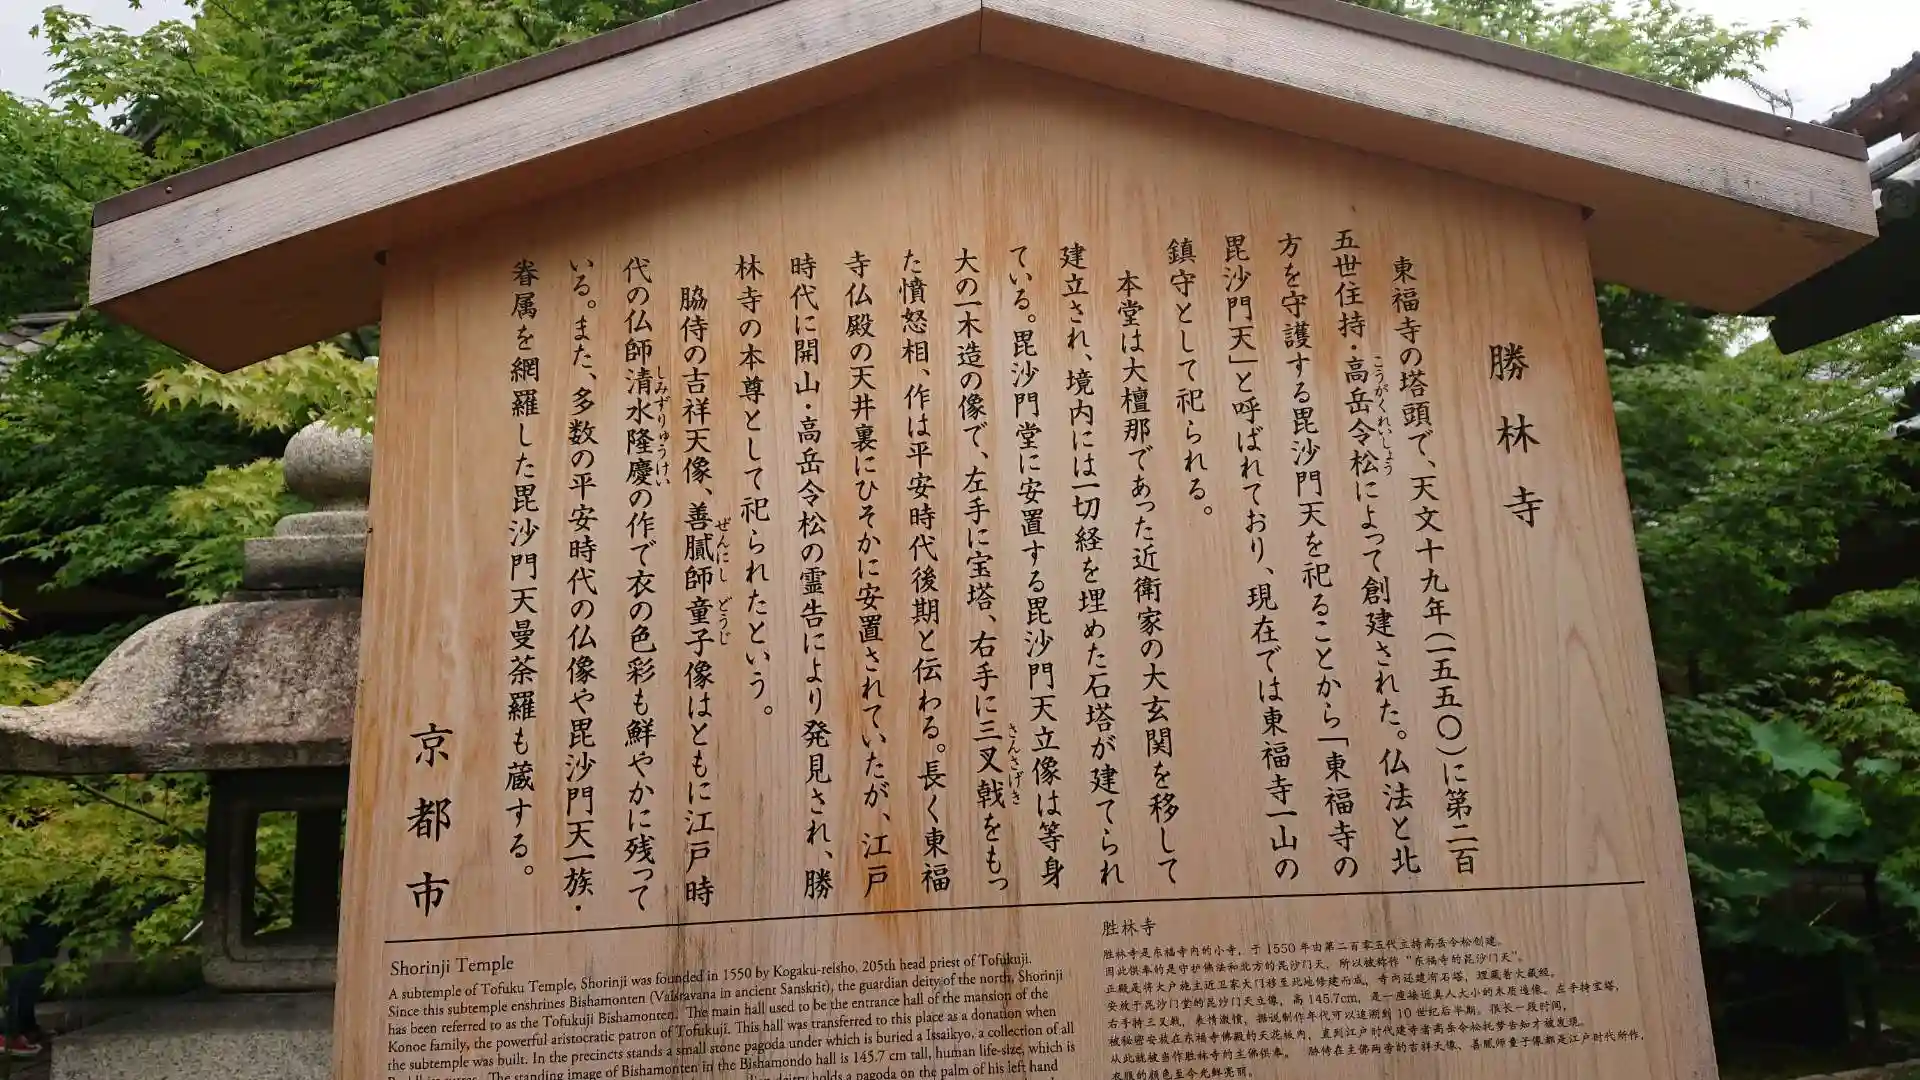 勝林寺
東福寺の塔頭で、天文十九年(一五五〇)に第二百
五世住持・高岳令松によって創建された。仏法と北
こうがくれいしょう
方を守護する毘沙門天を祀ることから「東福寺の
毘沙門天」と呼ばれており、現在では東福寺一山の
鎮守として祀られる。
本堂は大檀那であった近衛家の大玄関を移して
建立され、境内には一切経を埋めた石塔が建てられ
ている。毘沙門堂に安置する毘沙門天立像は等身
大の一木造の像で、左手に宝塔、右手に三叉戟をもっ
さんさげき
た憤怒相、作は平安時代後期と伝わる。長く東福
寺仏殿の天井裏にひそかに安置されていたが、江戸
時代に開山・高岳令松の霊告により発見され、勝
林寺の本尊として祀られたという。
脇侍の吉祥天像、善膩師童子像はともに江戸時
ぜんにし どうじ
代の仏師清水隆慶の作で衣の色彩も鮮やかに残って
しみずりゅうけい
いる。また、多数の平安時代の仏像や毘沙門天一族・
眷属を網羅した毘沙門天曼荼羅も蔵する。
京都市
Shorinji Temple
A subtemple of Tofuku Temple, Shorinji was founded in 1550 by Kogaku-reisho, 205th head priest of Tofukuji.
Since this subtemple enshrines Bishamonten (Vaisravana in ancient Sanskrit), the guardian deity of the north, Shorinji
has been referred to as the Tofukuji Bishamonten. The main hall used to be the entrance hall of the mansion of the
Konoe family, the powerful aristocratic patron of Tofukuji. This hall was transferred to this place as a donation when
the subtemple was built. In the precincts stands a small stone pagoda under which is buried a Issaikyo, a collection of all
The standing image of Bishamonten in the Bishamondo hall is 145.7 cm tall, human life-size, which is
deity holds a pagoda on the palm of his left hand
胜林寺
胜林寺是东福寺内的小寺，于1550年由第二百零五代主持高岳令松创建。
因此供奉的是守护佛法和北方的毘沙门天，所以被称作“东福寺的毘沙门天”。
正殿是将大户施主近卫家大门移至此地修建而成，寺内还建有石塔，埋藏着大藏经。
安放于毘沙门堂的毘沙门天立像，高145.7cm，是一座接近真人大小的木质造像。左手持宝塔，
右手持三叉戟，表情激愤，据说制作年代可以追溯到10世纪后半期。很长一段时间，
被秘密安放在东福寺佛殿的天花板内，直到江户时代建寺者高岳令松托梦告知才被发现。
从此就被当作胜林寺的主佛供奉。 胁侍在主佛两旁的吉祥天像、善腻师童子像都是江户时代所作，
衣服的颜色至今光鲜亮丽。